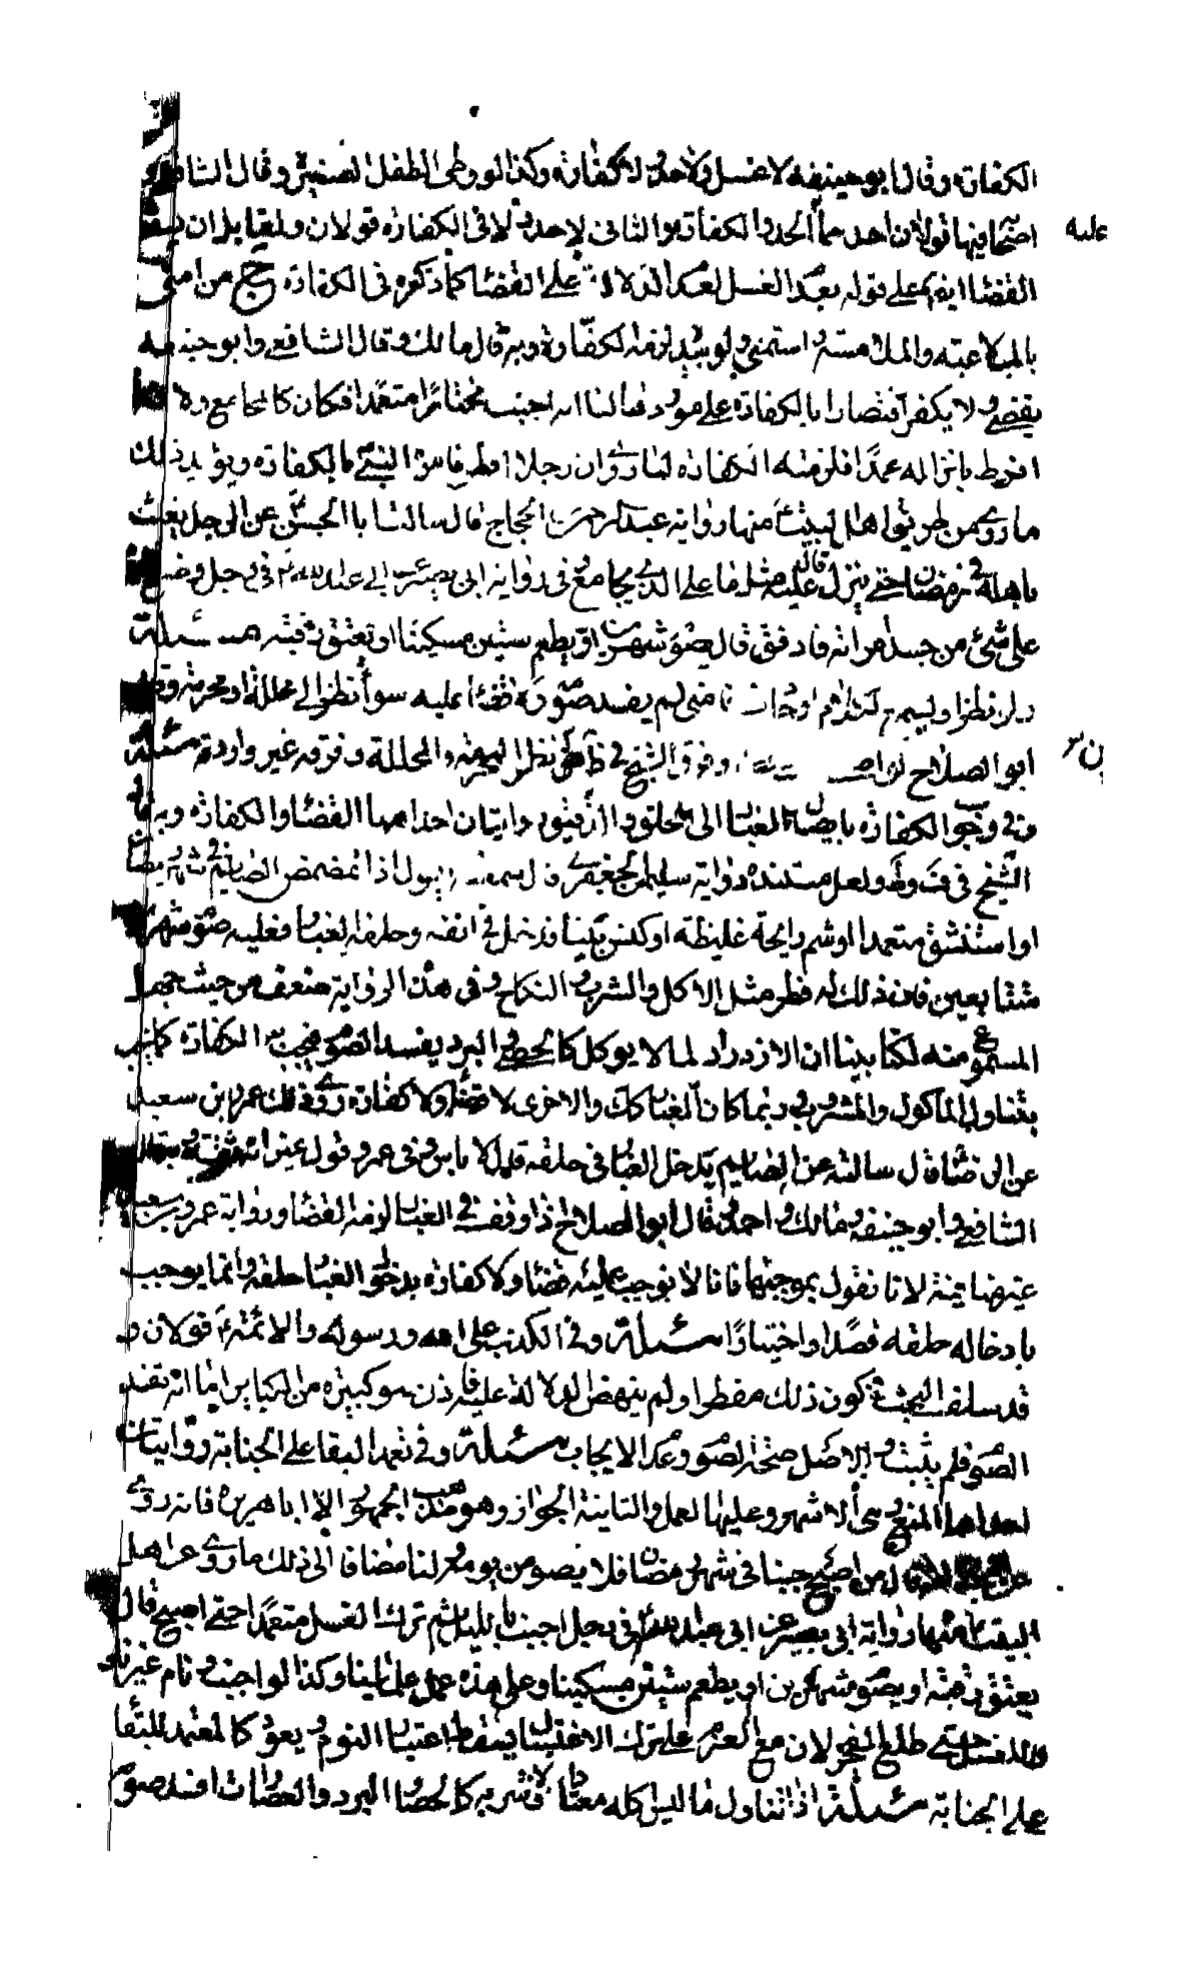 الكفارة وقال ابو حنيفه لا غسل ولا حد ولا كفارة وكذا لو وطى الطفل الصغيرة وقال الشافعي
عليه
اصحابنا فيها قولان احدهما الحد والكفارة والثاني لا حد ولا في الكفارة قولان ولقايل ان يسقط
القضا ايضا على قوله بعدم الغسل لعدم الدلالة على القضا كما ذكره في الكفارة من امنى
بالملاعبة والملامسة واستمنى ولو بيده لزمه الكفارة وبه قال مالك وقال الشافعي وابو حنيفه
يقضي ولا يكفر اقتصارا بالكفارة على مورد لنا انه اجنب مختارا متعمدا فكان كالمجامع ولا
افرط بانزاله عمدا فلزمته الكفارة لما روى ان رجلا افطر فامره النبي بالكفارة ويؤيد ذلك
ما روى من طريق اهل البيت منها رواية عبد الرحمن الحجاج قال سالت ابا الحسن عن الرجل يعبث
باهله في رمضان حتى ينزل قال عليه مثل ما على الذي يجامع في رواية ابي بصير عن ابي عبد الله في رجل وضع
على شئ من جسد امراته فادفق قال يصوم شهرين او يطعم ستين مسكينا او يعتق رقبة مسئلة
ولو نظر او ليس فامنى لم يفسد صومه عليه سوا نظر الى محللة او محرمة
ابو الصلاح وفرق الشيخ في نظر المحرمة والمحللة و فرقه غير وارد مسئلة
وفي وجوب الكفارة بايصال الغبار الى الحلق روايتان احداهما القضا والكفارة وبه قال
الشيخ في ولعل مستنده رواية سليمان الجعفري قال سمعته يقول اذا تمضمض الصايم في رمضان
او استنشق متعمدا او شم رايحة غليظة او كنس بيتا فدخل في انفه وحلقه الغبار فعليه صوم شهرين
متتابعين فان ذلك له فطر مثل الاكل والشرب النكاح وفي هذه الرواية ضعف من حيث جهل
المسموع منه لكنا بينا ان الازدراد لما لا يوكل كالحصى والبرد يفسد الصوم فيجب الكفارة كما يجب
بتناول الماكول والمشروب وربما كان الغبار كذلك والاخرى لا قضا ولا كفارة روى ذلك عمرو بن سعيد
عن الرضا قال سالته عن الصايم يدخل الغبار في حلقه قال لا باس وفي عمرو قول غير انه ثقة
الشافعي وابو حنيفه مالك واحمد وقال ابو الصلاح اذا وقف في الغبار لزمه القضا ورواية عمرو بن سعيد
لانا نقول بموجبها فانا لا نوجب عليه قضا ولا كفارة بدخول الغبار حلقه وانما يوجب
بادخاله حلقه قصدا واختيارا مسئلة وفي الكذب على الله ورسوله والائمة قولان و
قد سلف البحث في كون ذلك مفطرا ولم ينهض الدلالة عليه فاذن هو كبيرة من الكباير اما انه تفسد
الصوم فلم يثبت والاصل صحة الصوم وعدم الايجاب مسئلة وفي تعمد البقا على الجنابة روايتان
احداهما المنع وهي الاشهر وعليها العمل والثانية الجواز وهو مذهب الجمهور الا ابا هريرة فانه روى
قال من اصبح جنبا في شهر رمضان فلا يصومن يومه لنا مضافا الى ذلك ما روى عن اهل
البيت منها رواية ابي بصير عن ابي عبد الله في رجل اجنب بالليل ثم ترك الغسل متعمدا حتى اصبح قال
يعتق رقبة او يصوم شهرين او يطعم ستين مسكينا وعلى هذه عمل علمائنا وكذا لو اجنب ونام غير ناو
للغسل حتى طلع الفجر لان مع العزم على ترك الاغتسال يسقط اعتبار النوم ويعود كالمعتمد للبقا
على الجنابة مسئلة اذا تناول ما ليس اكله معتادا ولا شربه كالحصا والبرد والعصارات افسد صومه